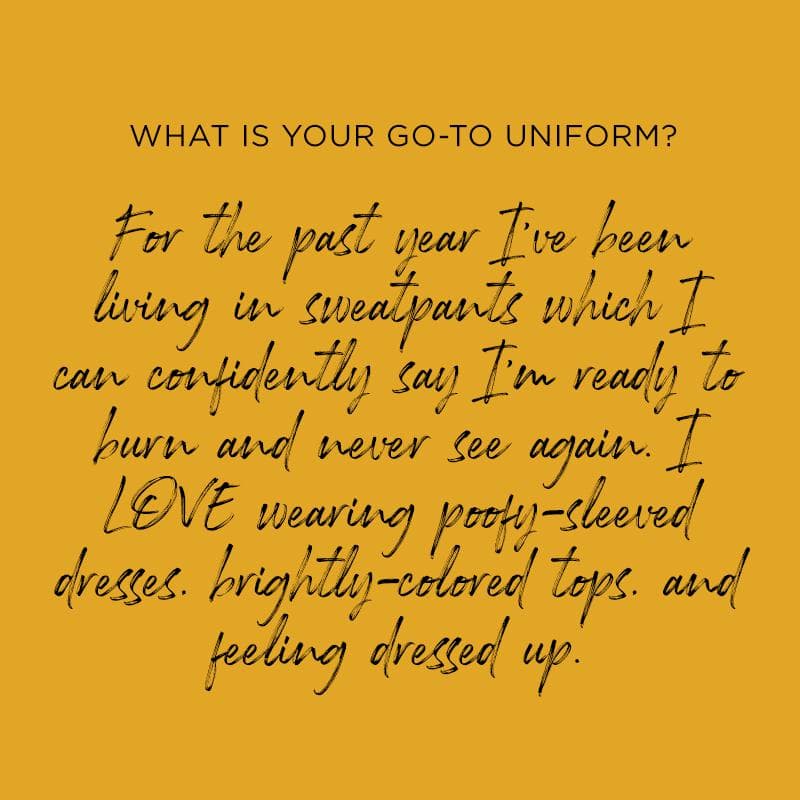 WHAT IS YOUR GO-TO UNIFORM?
For the past year I've been
living in sweatpants which I
can confidently say I'm ready to
burn and never see again. I
LOVE wearing poofy-sleeved
dresses. brightly-colored tops. and
feeling dressed up.